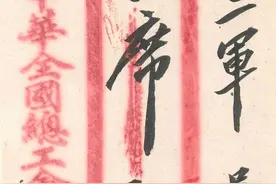 二軍
席
中華全國總工會